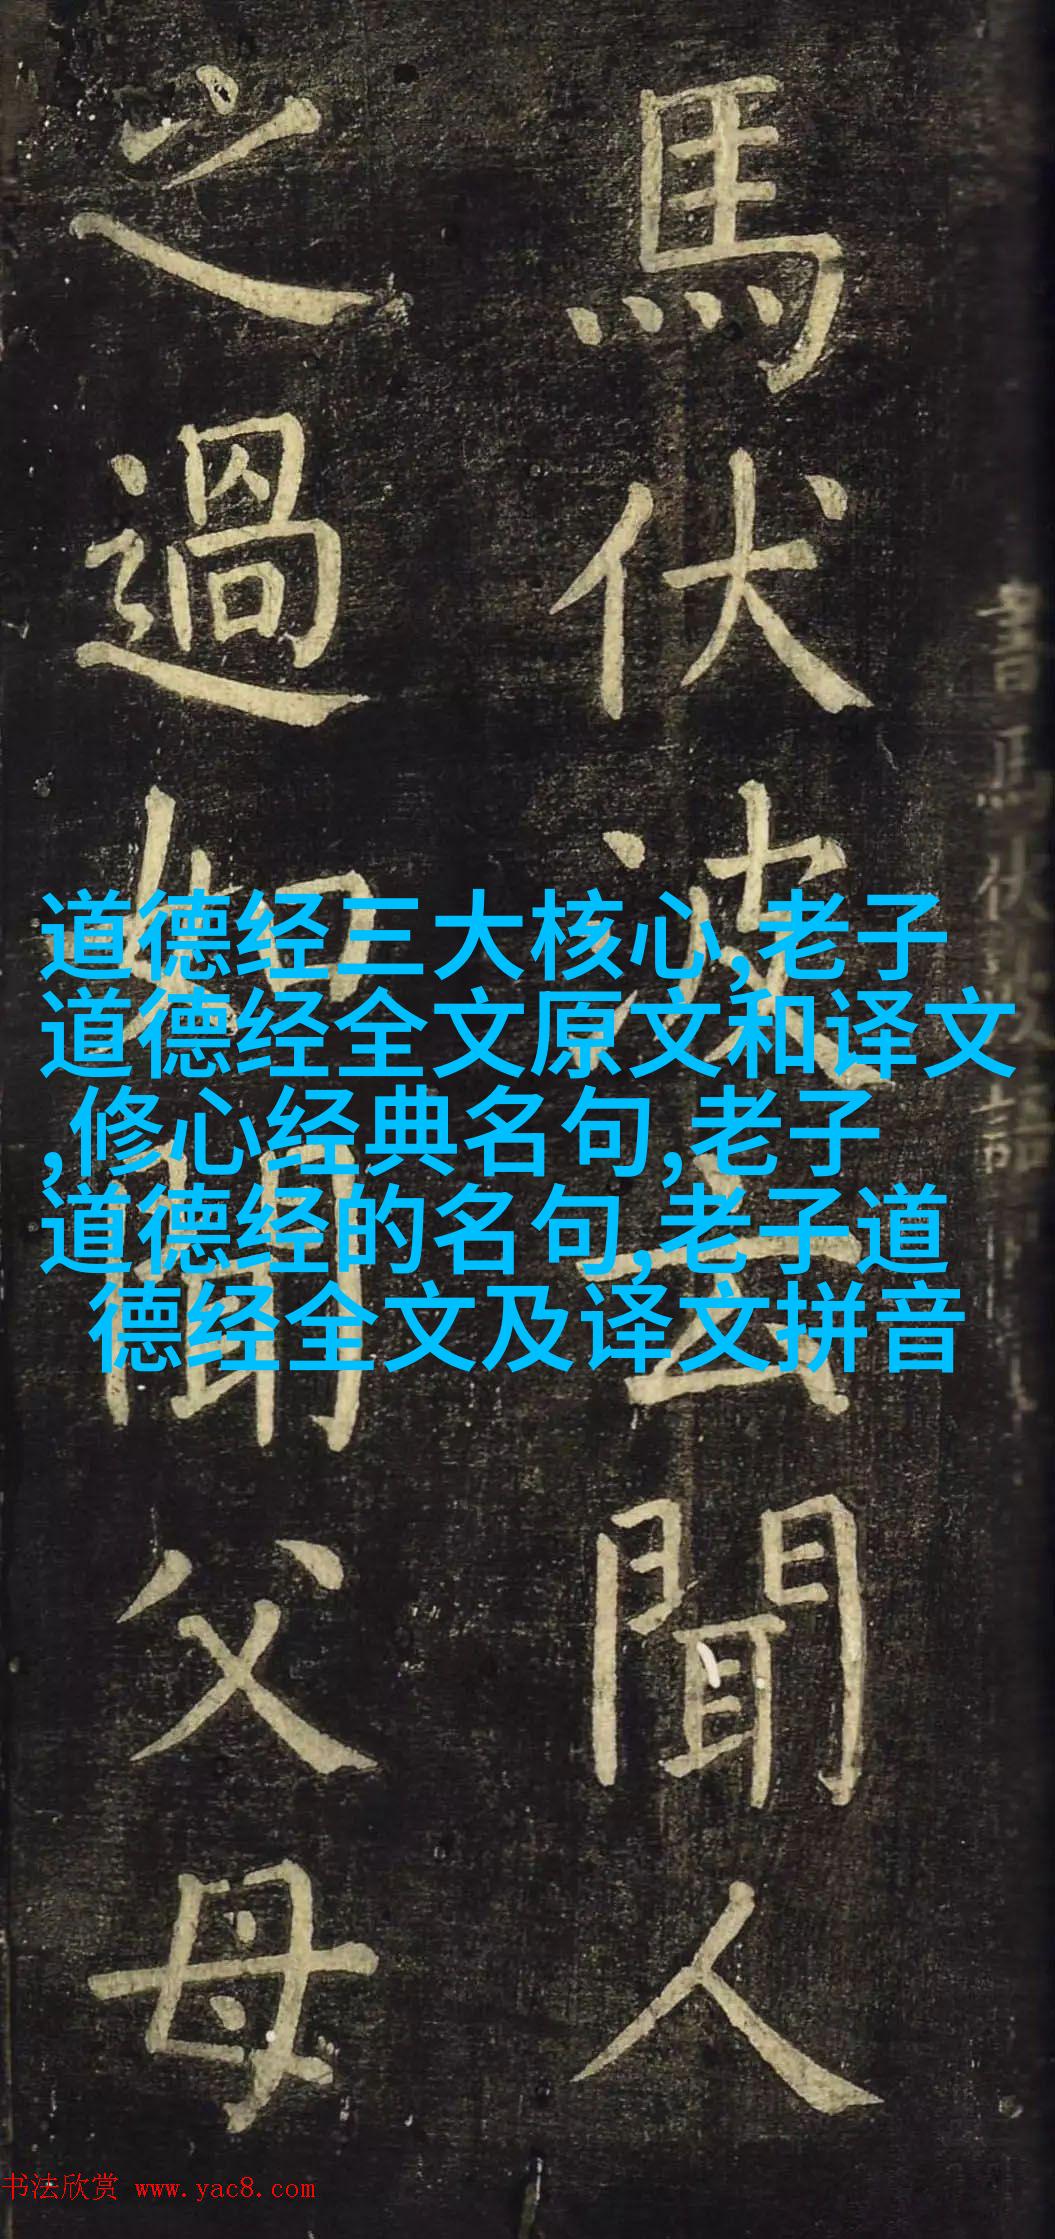 馬伏波云聞人
之過如聞父母
道德经三大核心,老子
道德经全文原文和译文
,修心经典名句,老子
道德经的名句,老子道
德经全文及译文拼音
书法欣赏 www.yac8.com